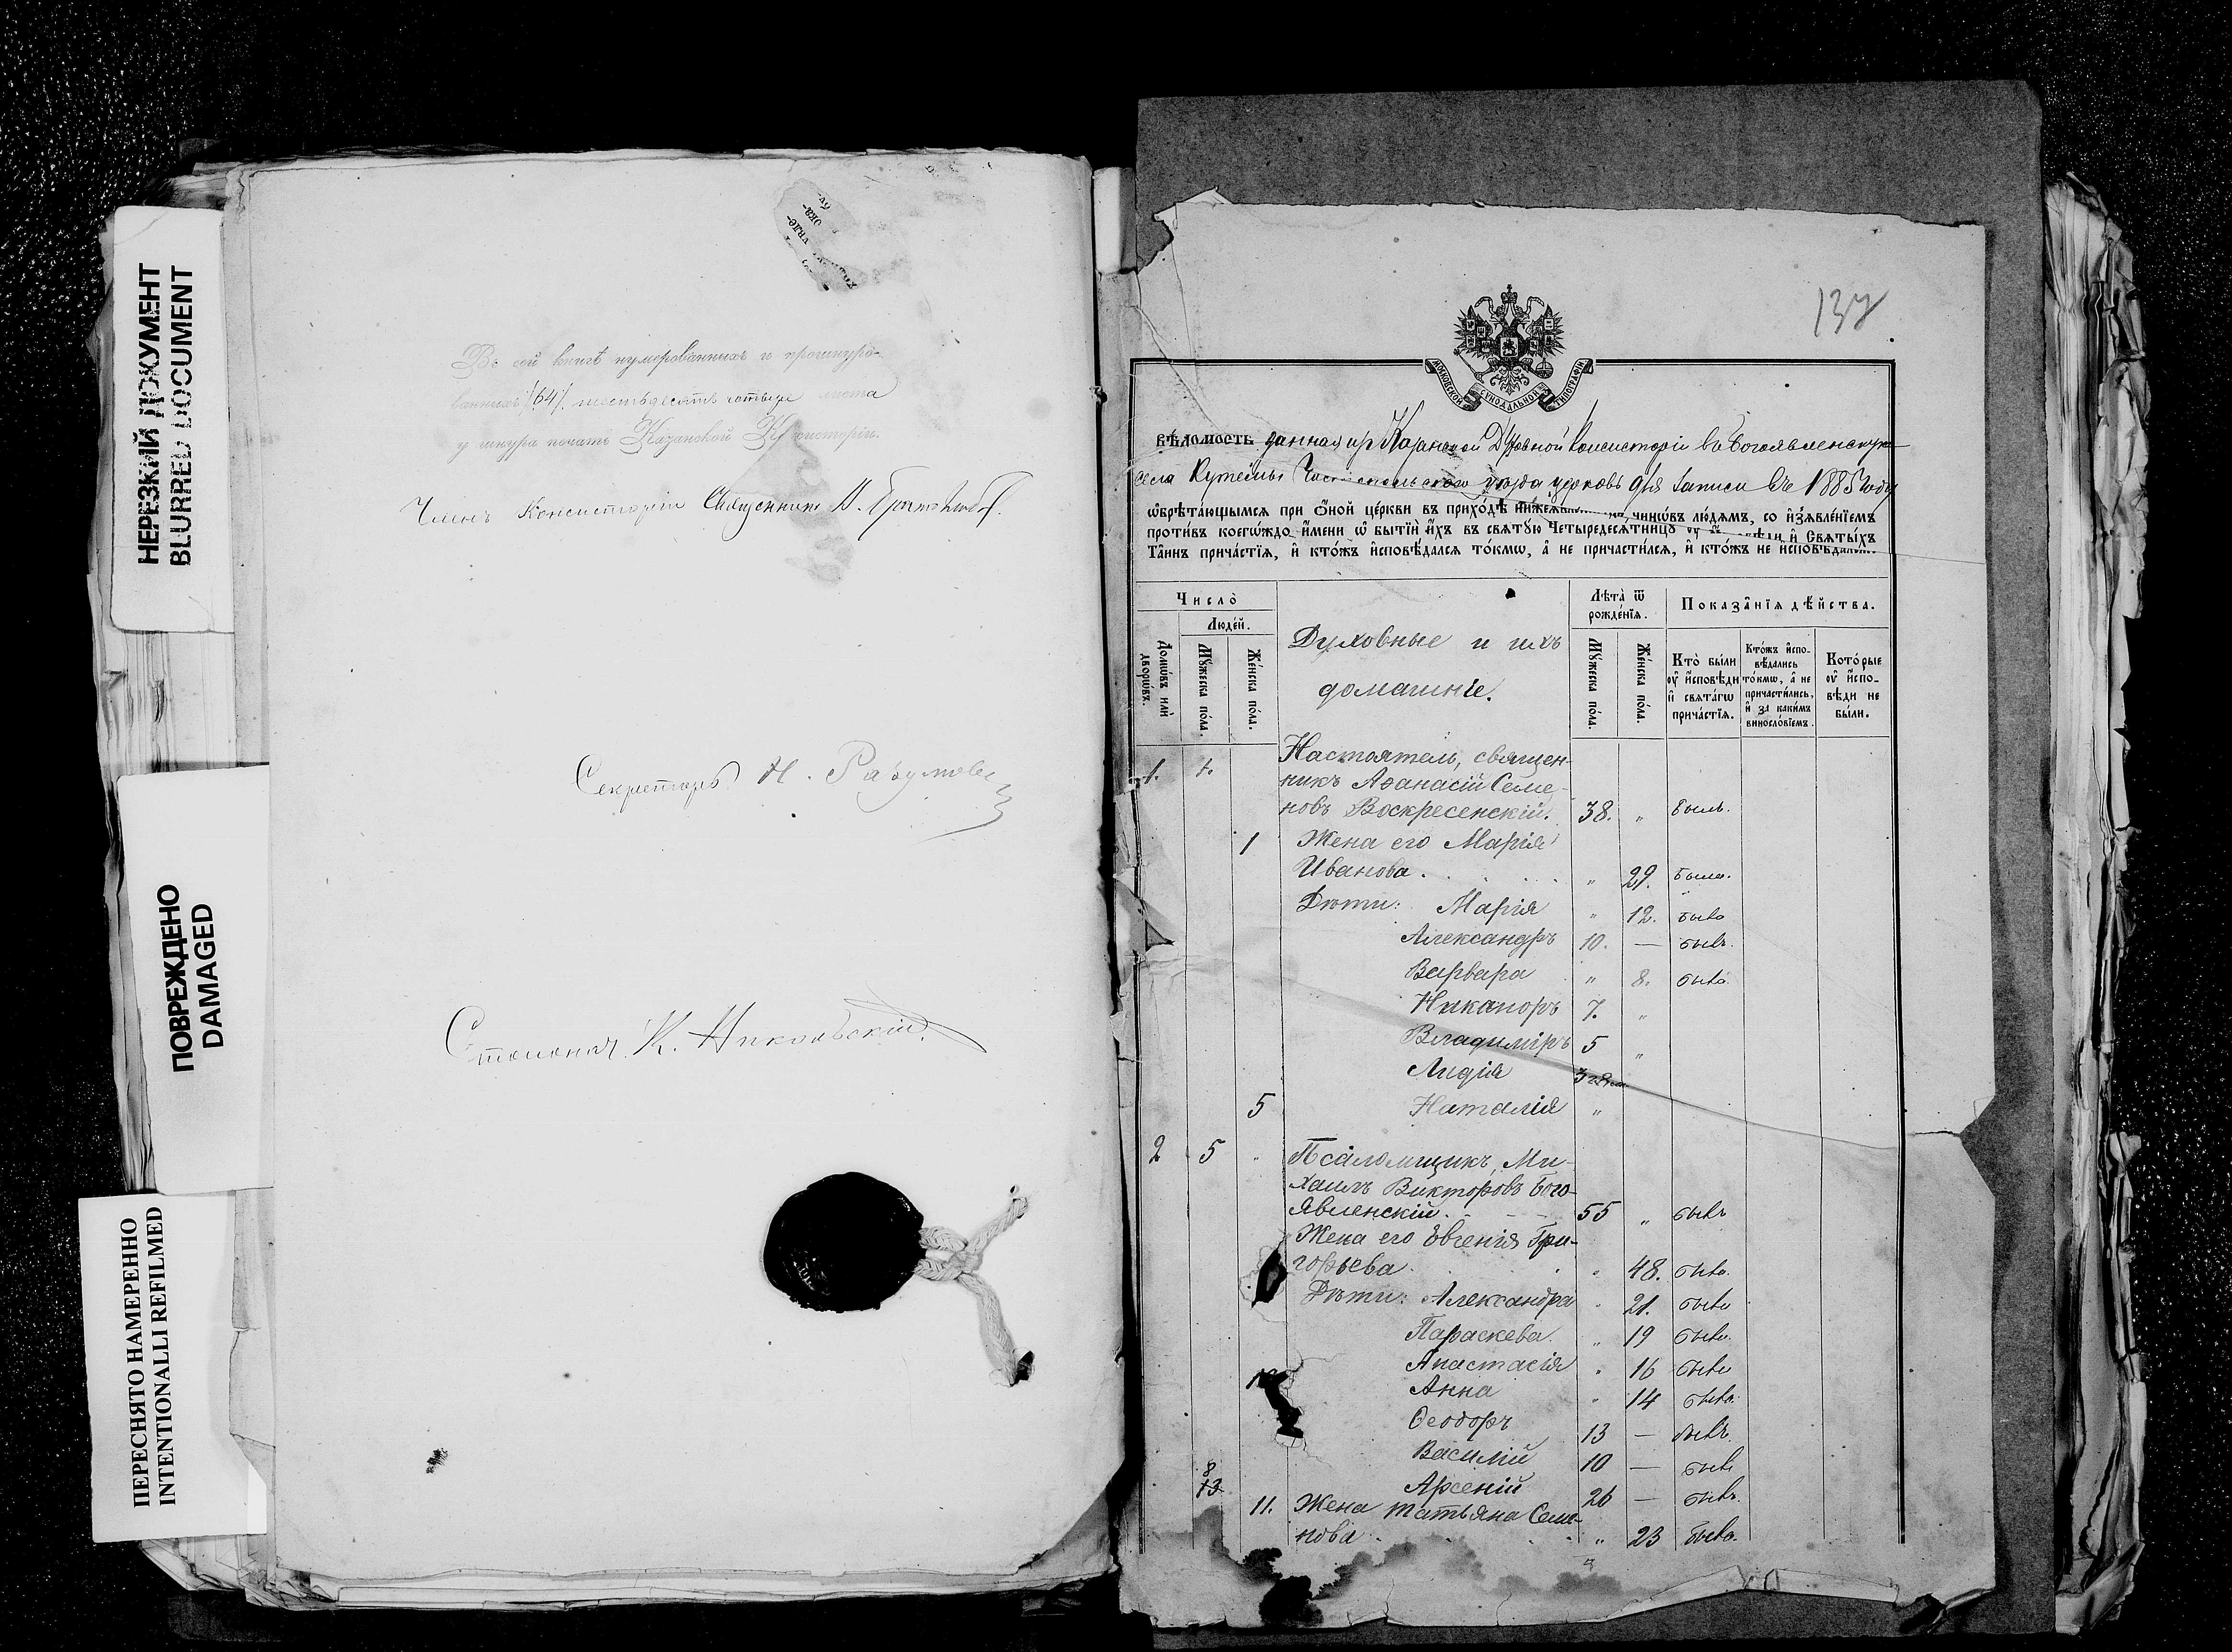 НЕРЕЗКИЙ ДОКУМЕНТ
BLURRED DOCUMENT
ПОВРЕЖДЕНО
DAMAGED
ПЕРЕСНЯТО НАМЕРЕННО
INTENTIONALLI REFILMED
Въ сей книгѣ нумерованныхъ и прошнуро-
ванныхъ /64/. шестьдесятъ четыре листа
у шнура печать Казанской Консисторіи.
Членъ Консисторіи Священникъ
Секретарь Н. Разумов
К. Никольскій.
137
МОСКОВСКОЙ СѴНОДАЛЬНОЙ ТИПОГРАФІИ
вѣдомость данная изъ Казанской Духовной Консисторіи въ Богоявленскую
села Кутемы Чистопольскаго уѣзда церковь для записи въ 1885 году
ѡбрѣта́ющымсѧ при ѻ҆́ной це́ркви въ прихо́дѣ чинѡ́въ лю́демъ, со и҆з̾ѧвле́нїемъ
проти́въ коегѡ́ждо и҆́мени ѡ҆ бытїѝ и҆́хъ въ свѧтꙋ́ю Четыредесѧ́тницꙋ и҆ Свѧты́хъ
Та̑инъ прича́стїѧ, и҆ кто́жъ и҆сповѣ́далсѧ то́кмѡ, а҆ не причасти́лсѧ, и҆ кто́жъ не и҆сповѣ́далсѧ
Число̀
Люде́й.
Домѡ́въ и҆лѝ дворѡ́въ.
Мꙋ́жеска по́ла.
Же́нска по́ла.
Духовные и ихъ
домашніе.
Лѣ́та ѿ рожде́нїѧ.
Мꙋ́жеска по́ла.
Же́нска по́ла.
Показа̑нїѧ дѣ́йства.
Кто̀ бы́ли ᲂу҆ и҆́сповѣди и҆ свѧта́гѡ прича́стїѧ.
Кто́жъ и҆спо-вѣ́дались то́кмѡ, а҆ не причасти́лись, и҆ за каки́мъ винословіемъ.
Кото́рые ᲂу҆ и҆́спо-вѣди не бы́ли.
1. 1. Настоятель, священ-
никъ Аѳанасій Семе-
новъ Воскресенскій. 38. „ былъ.
1 Жена его Марія
Иванова. „ 29. была.
Дѣти: Марія „ 12. была
Александръ 10. — былъ.
Варвара „ 8. была
Никаноръ 7. „
Владиміръ 5 „
Лидія
5 Наталія „
2 5 Псаломщикъ, Ми-
хаилъ Викторовъ Бого-
явленскій. 55 „ былъ
Жена его Евгенія Гри-
горьева. „ 48. была.
Дѣти: Александра „ 21. была
Параскева. „ 19 была.
Анастасія „ 16 была
Анна „ 14 была.
Ѳеодоръ 13 — былъ.
Василій 10 — былъ
8
13 Арсеній 26 — былъ.
11. Жена Татьяна Семе-
нова. „ 23 была.